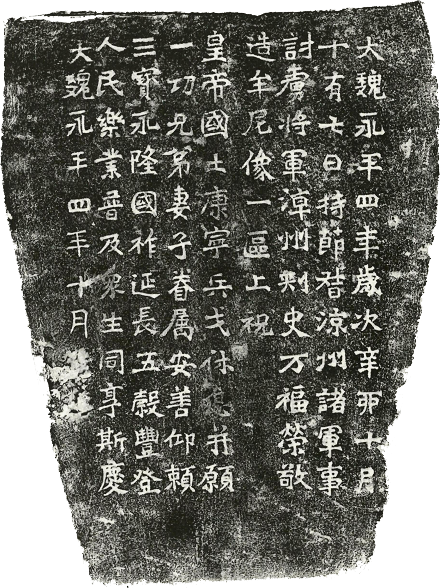 太魏永平四年歲次辛卯十月
十有七日持節督涼州諸軍事
討虜將軍漳州刺史万福榮敬
造牟尼像一區上祝
皇帝國土康寧兵戈休息并願
一切兄弟妻子眷属安善仰賴
三寶永隆國祚延長五穀豐登
人民樂業普及眾生同享斯慶
大魏永平四年十月